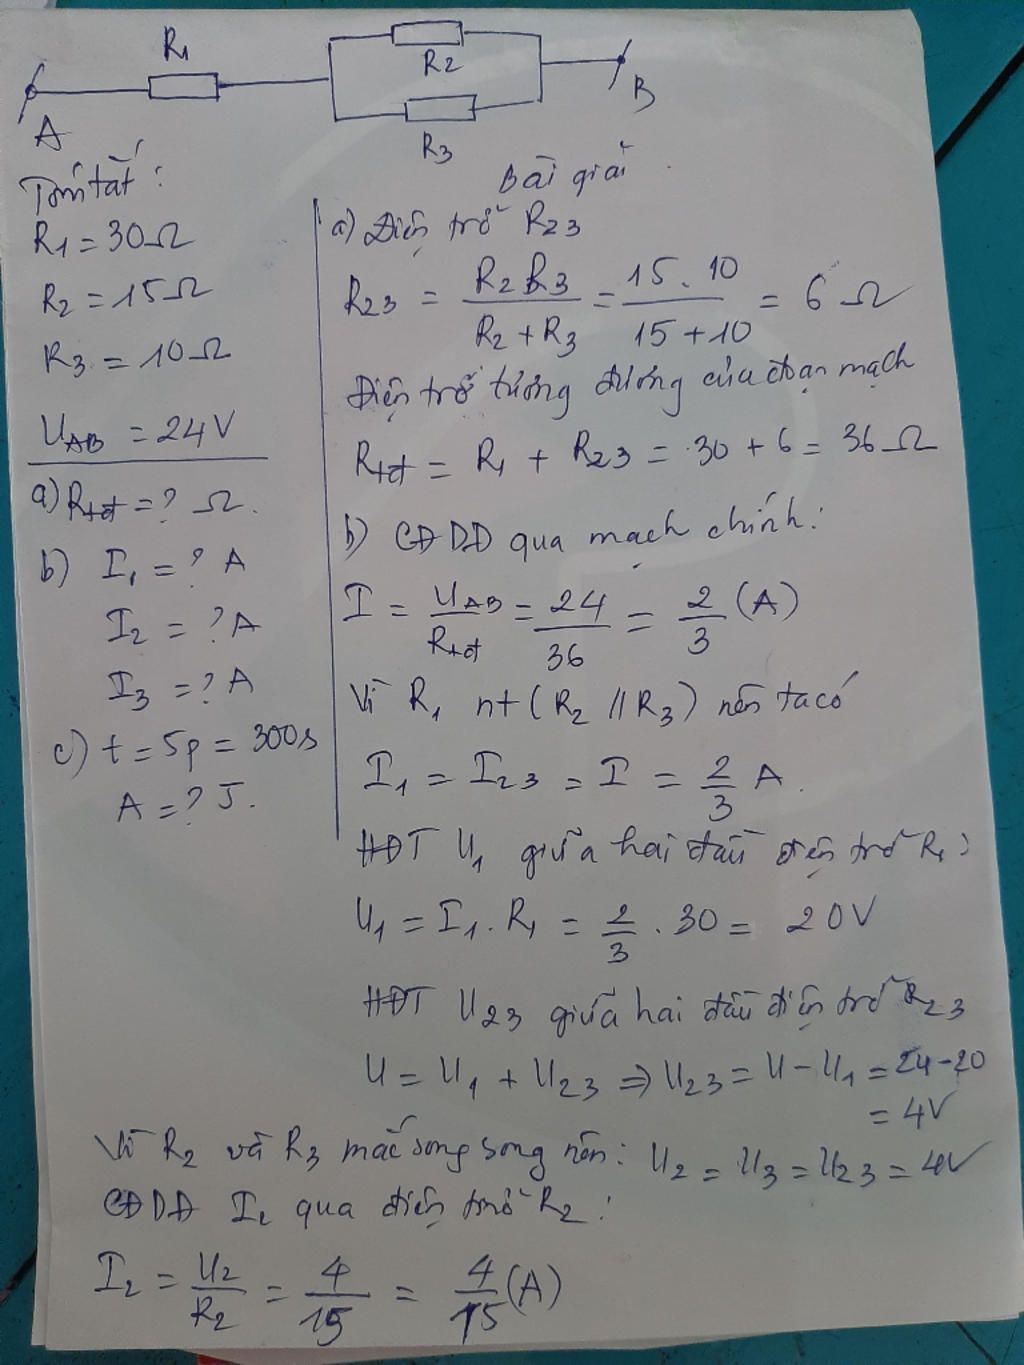 R1
R2
R3
A
B
Tóm tắt:
R1 = 30Ω
R2 = 15Ω
R3 = 10Ω
UAB = 24V
a) Rtđ = ? Ω.
b) I1 = ? A
I2 = ? A
I3 = ? A
c) t = 5p = 300s
A = ? J.
Bài giải
a) Điện trở R23
R23 = R2 R3 / R2 + R3 = 15 . 10 / 15 + 10 = 6 Ω
Điện trở tương đương của đoạn mạch
Rtđ = R1 + R23 = 30 + 6 = 36 Ω
b) CĐDĐ qua mạch chính:
I = UAB / Rtđ = 24 / 36 = 2 / 3 (A)
Vì R1 nt (R2 // R3) nên ta có
I1 = I23 = I = 2 / 3 A.
HĐT U1 giữa hai đầu điện trở R1:
U1 = I1 . R1 = 2 / 3 . 30 = 20V
HĐT U23 giữa hai đầu điện trở R23
U = U1 + U23 ⇒ U23 = U - U1 = 24 - 20
= 4V
Vì R2 và R3 mắc song song nên: U2 = U3 = U23 = 4V
CĐDĐ I2 qua điện trở R2:
I2 = U2 / R2 = 4 / 15 = 4 / 15 (A)